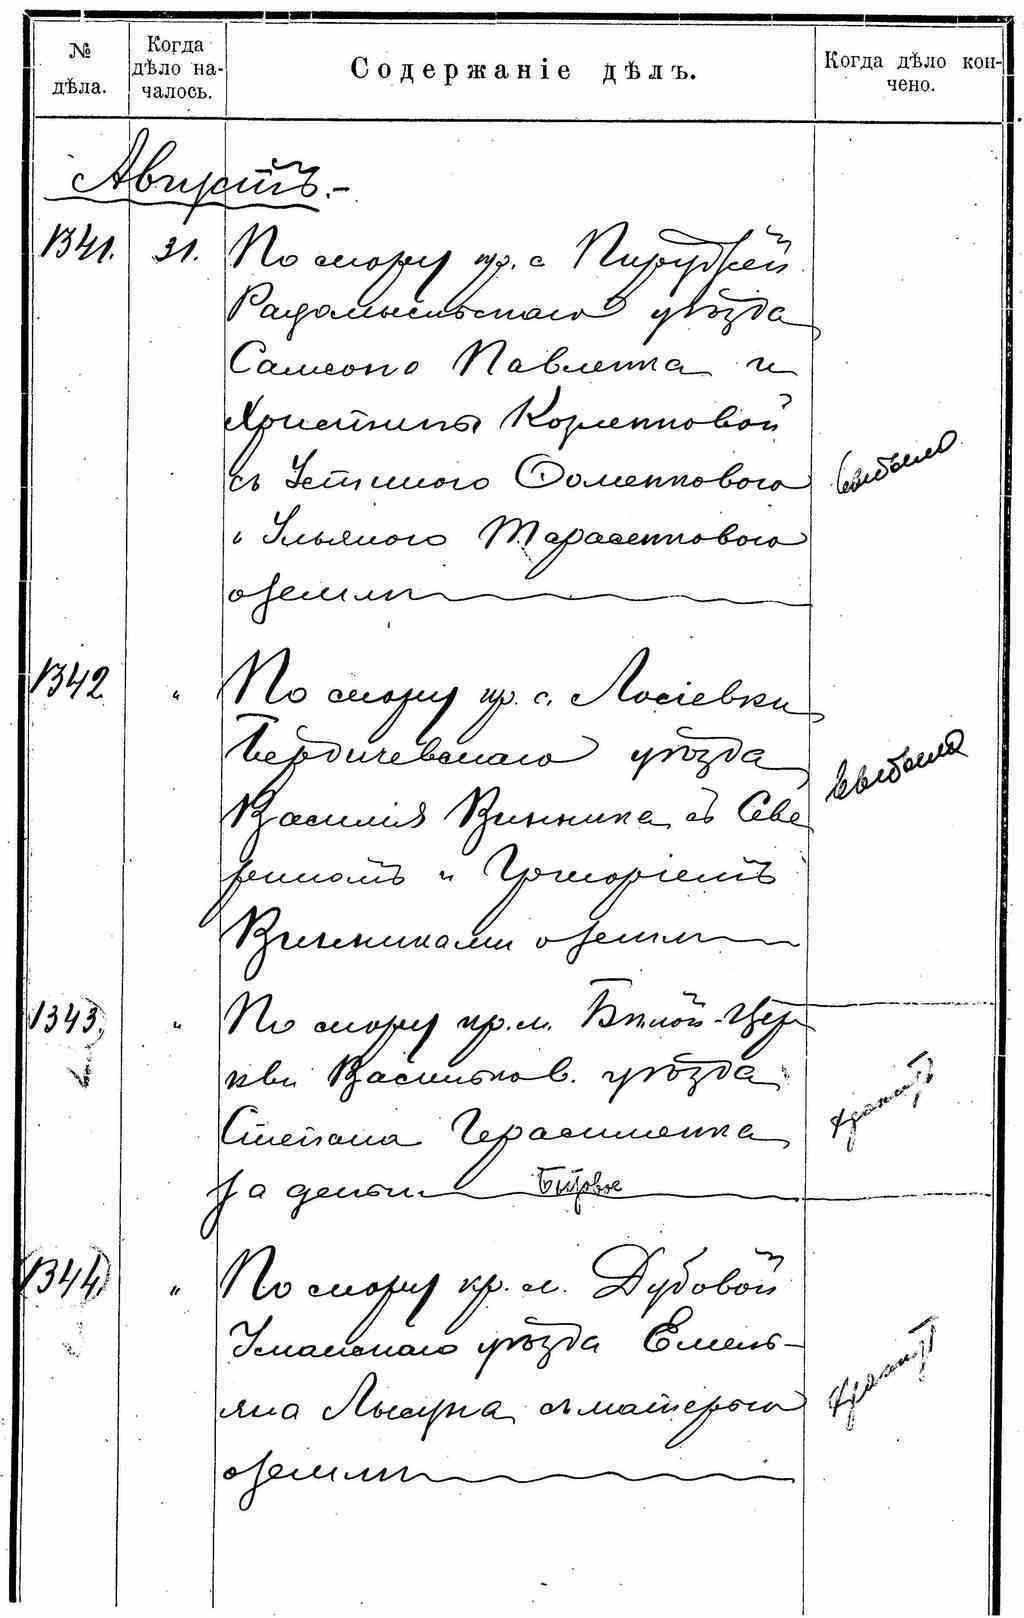 № дѣла.
Когда дѣло на-
чалось.
Содержаніе дѣлъ.
Когда дѣло кон-
чено.
Августъ.
1341. 31. По спору кр. с.
Радомысльскаго уѣзда
Самсона Павленка и
Христины Корленковой
съ Устиною Фоменковою
и Ульяною Тарасенковою
о землѣ
выбыло
1342 " По спору кр. с. Лосіевки
Бердичевскаго уѣзда
Василія Винника съ Севе
риномъ и Григоріемъ
Винниками о землѣ
выбыло
1343. " По спору кр. м. Бѣлой-Цер
кви Васильков. уѣзда
Степана Герасименка
за деньги Бытовое
хранит
1344. " По спору кр. м. Дубовой
Уманскаго уѣзда Емель-
яна Лысука съ матерью
о землѣ
хранит